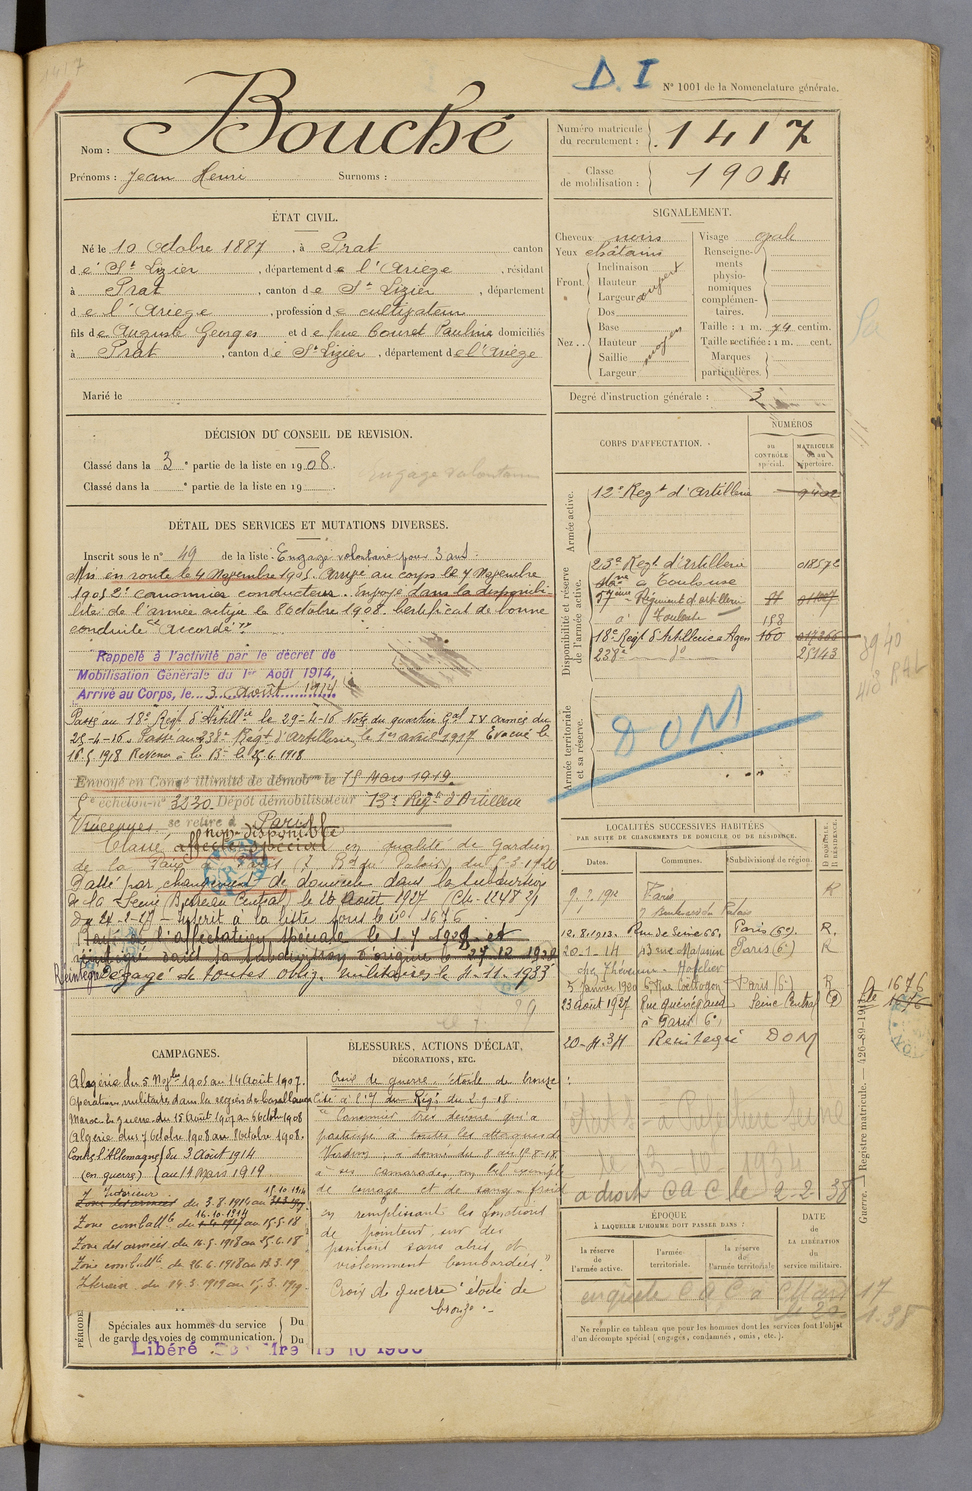 1417
D. I
N° 1001 de la Nomenclature générale.
Nom : Bouché
Prénoms : Jean Henri Surnoms :
Numéro matricule du recrutement : 1417
Classe de mobilisation : 1904
ÉTAT CIVIL.
Né le 10 Octobre 1887, à Prat canton
de St Lizier, département de l'Ariège, résidant
à Prat, canton de St Lizier, département
de l'Ariège, profession de cultivateur
fils de Auguste Georges et de feue Couret Pauline domiciliés
à Prat, canton de St Lizier, département de l'Ariège
Marié le
SIGNALEMENT.
Cheveux noirs
Yeux châtains
Front. Inclinaison
Hauteur
Largeur
Nez . . Dos
Base
Hauteur
Saillie
Largeur
moyen
Visage ovale
Renseignements physionomiques complémentaires.
Taille : 1 m. 74 centim.
Taille rectifiée : 1 m. cent.
Marques particulières.
Degré d'instruction générale : 3
DÉCISION DU CONSEIL DE REVISION.
Classé dans la 3e partie de la liste en 1908.
Classé dans la e partie de la liste en 19
engagé volontaire
DÉTAIL DES SERVICES ET MUTATIONS DIVERSES.
Inscrit sous le n° 49 de la liste. Engagé volontaire pour 3 ans.
Mis en route le 4 Novembre 1905. Arrivé au corps le 7 Novembre
1905 2e canonnier conducteur. Envoyé dans la disponibi-
lité de l'armée active le 8 Octobre 1908. Certificat de bonne
conduite "Accordé".
Rappelé à l'activité par le décret de
Mobilisation Générale du 1er Août 1914,
Arrivé au Corps, le 3 Août 1914
Passé au 18e Régt d'Artillie le 29-4-16 Note du quartier Gal IV armée du
25-4-16. Passé au 238e Régt d'Artillerie, le 1er avril 1917 Evacué le
16.5.1918 Revenu à le Bie le 25.6.1918
Envoyé en Congé illimité de démobon le 15 Mars 1919.
5e échelon n° 3230 Dépôt démobilisateur 13e Régt d'Artillerie
Vincennes se retire à Paris
Classé affecté spécial non disponible en qualité de Gardien
de la Paix à Paris (7 Bd du Palais) du 5.3.1920
Passé par changement de domicile dans la subdivision
de la Seine (Bureau Central) le 20 Août 1927
du 24-2-27 - Inscrit à la liste sous le n° 1676
Rayé de l'affectation spéciale le 1 7 1928 et
réintégré dans sa subdivision d'origine le 27.12.1930
Réintégré Dégagé de toutes oblig. militaires le 4-11-1933
CORPS D'AFFECTATION.
NUMÉROS
au CONTRÔLE spécial.
MATRICULE ou au répertoire.
Armée active.
12e Régt d'Artillerie 9402
Disponibilité et réserve de l'armée active.
23e Régt d'artillerie 01857c
à Toulouse
57ème Régiment d'artillerie
à Toulouse
158
18e Régt d'Artillerie à Agen 160 017366
238e do 25143
Armée territoriale et sa réserve.
DOM
LOCALITÉS SUCCESSIVES HABITÉES
PAR SUITE DE CHANGEMENTS DE DOMICILE OU DE RÉSIDENCE.
Dates. Communes. Subdivision de région. D DOMICILE. R RÉSIDENCE.
Paris R
7 Boulevard du Palais
12.8.1913. Rue de Seine 66 Paris (6e). R.
20-1-14 13 rue Mazarine Paris (6e) R
chez Thévenin - Hôtelier
5 Janvier 1920 6 Rue Coëtlogon Paris (6e) R
23 août 1927 Rue Guénégaud Seine Central D
à Paris 6e
20-4.34 Réintégré DOM
fo 1676
a droit C A C le 2-2-38
CAMPAGNES.
Algérie du 5 Novbre 1905 au 14 Août 1907.
Opérations militaires dans la région de Casablanca
Maroc en guerre du 15 Août 1907 au 6 Octobre 1908
Algérie du 7 Octobre 1908 au 8 Octobre 1908.
Contre l'Allemagne du 3 Août 1914
(en guerre) au 14 Mars 1919
Z Intérieure 15.10.1914
Zone des armées du 3.8.1914 au
16.10.1914
Zone combattte du au 15.5.18
Zone des armées du 16.5.1918 au 25.6.18
Zone combattte du 26.6.1918 au 13.3.19
Intérieur du 14.3.1919 au 15.3.1919
PÉRIODE
Spéciales aux hommes du service
de garde des voies de communication.
Du
Du
Libéré
BLESSURES, ACTIONS D'ÉCLAT,
DÉCORATIONS, ETC.
Croix de guerre étoile de bronze
Cité à l'O du Régt du 2.9.18
"Canonnier très dévoué qui a
participé à toutes les attaques de
Verdun, a donné du 8 au 18-8-18
à ses camarades, un bel exemple
de courage et de sang-froid
en remplissant les fonctions
de pointeur, sur des
positions sans abris et
violemment bombardées."
Croix de guerre étoile de
bronze.-
ÉPOQUE
À LAQUELLE L'HOMME DOIT PASSER DANS :
la réserve de l'armée active.
l'armée territoriale.
la réserve de l'armée territoriale.
DATE de LA LIBÉRATION du service militaire.
enquête C A C à
Ne remplir ce tableau que pour les hommes dont les services font l'objet
d'un décompte spécial (engagés, condamnés, omis, etc.).
Guerre. — Registre matricule.